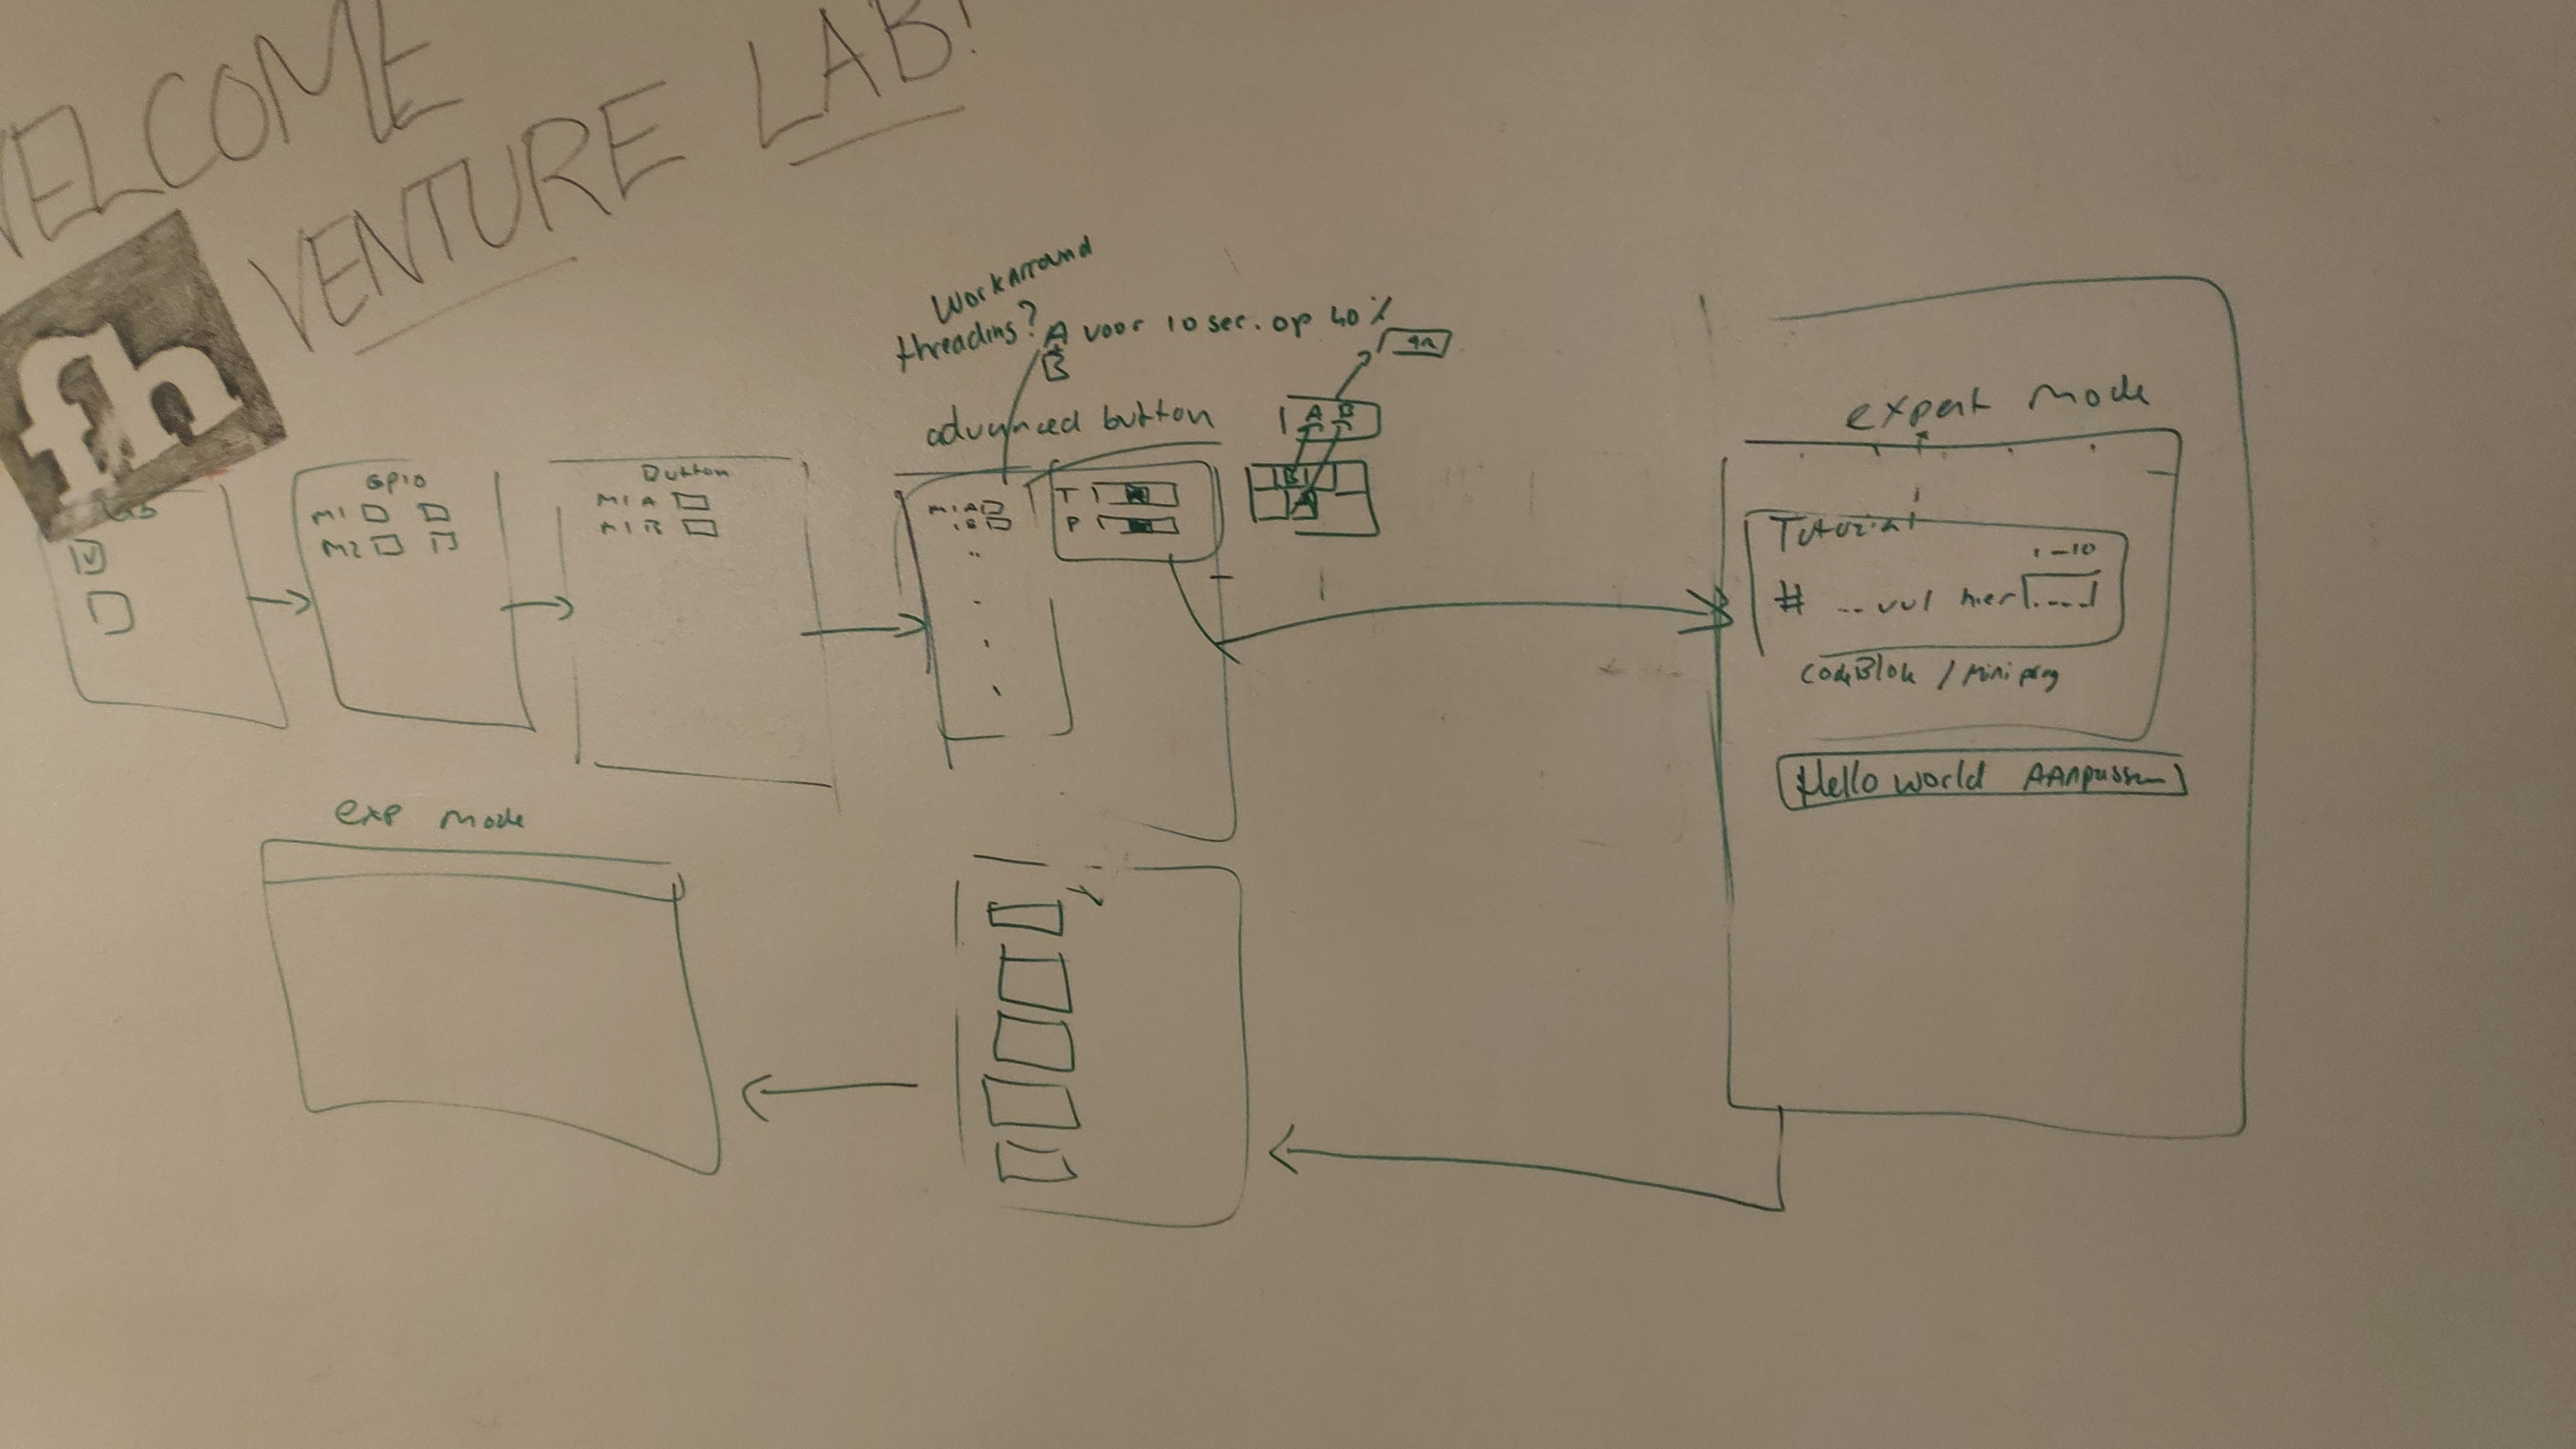 WELCOME
VENTURE LAB!
fh
Workarround
threading?
A voor 10 sec. op 40%
B
advanced button
A B
B
A
Gpio
M1
M2
Button
M1 A
M1 B
M1 A
B
T
P
expert mode
Tutorial
1-10
# ... vul hier ....
codeBlok / mini prog
Hello world AANpassen
exp mode